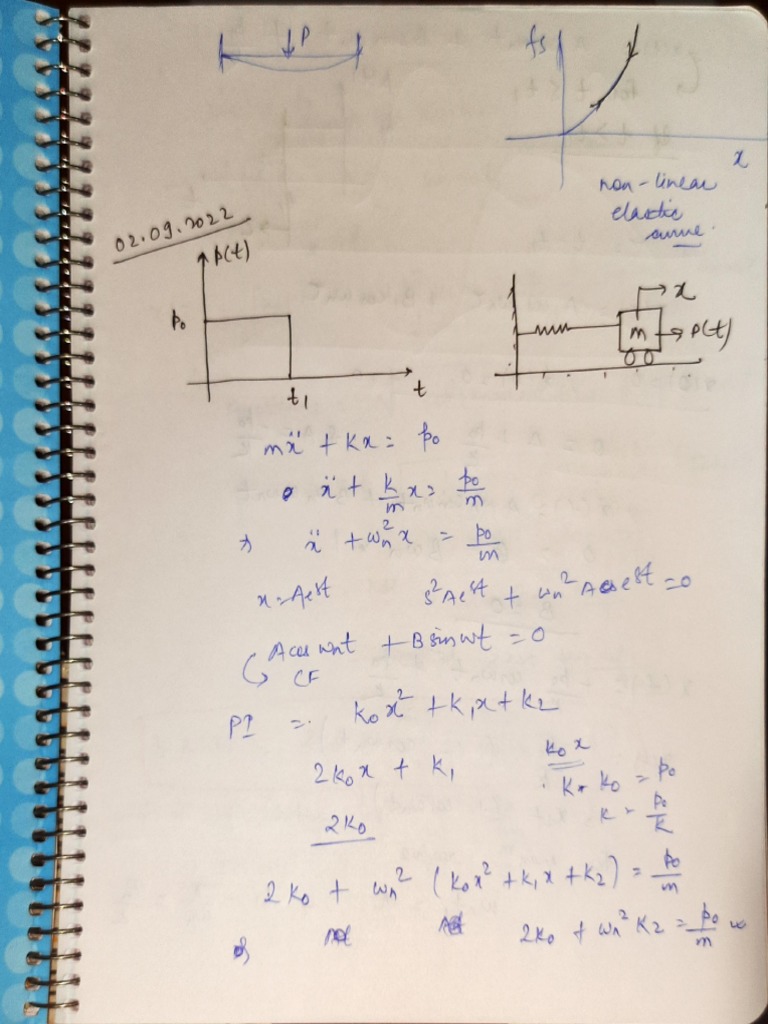 P
fs
x
non-linear
elastic
curve
02.09.2022
p(t)
p₀
t₁
t
x
m
p(t)
mẍ + Kx = p₀
ẍ + k/m x = p₀/m
⇒ ẍ + ωn² x = p₀/m
x = Ae^st s²Ae^st + ωn² A e^st = 0
A cos ωnt + B sin ωt = 0
CF
PI = k₀x² + k₁x + k₂
k₀x
2k₀x + k₁
K * k₀ = p₀
K = p₀/K
2k₀
2k₀ + ωn² (k₀x² + k₁x + k₂) = p₀/m
2k₀ + ωn² k₂ = p₀/m